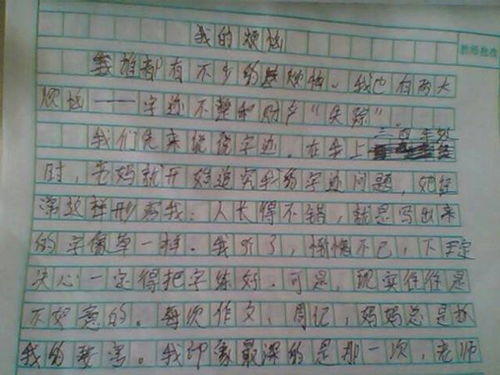 我的烦恼
谁都有不少的烦恼。我也有两大
烦恼——字迹不整和财产“失踪”
我们先来说说字迹。在我上三年级
时,老妈就开始追究我的字迹问题,她经
常这样形容我:人长得不错,就是写出来
的字像草一样。我听了,惭愧不已,下定
决心一定得把字练好。可是,现实往往是
不如意的。每次作文,周记,妈妈总是
我的。我印象最深的是那一次,老师